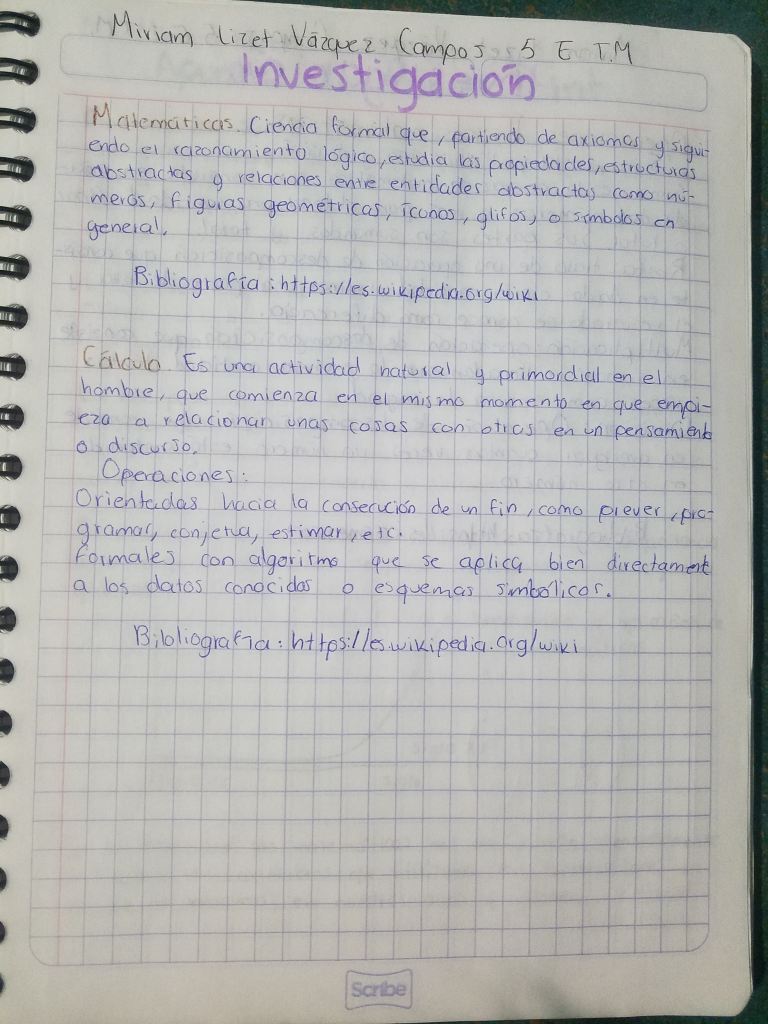 Miriam Lizet Vázquez Campos 5 E T.M
Investigación
Matemáticas. Ciencia formal que, partiendo de axiomas y sigui-
endo el razonamiento lógico, estudia las propiedades, estructuras
abstractas y relaciones entre entidades abstractas como nú-
meros, figuras geométricas, íconos, glifos, o símbolos en
general.
Bibliografía: https://es.wikipedia.org/wiki
Cálculo. Es una actividad natural y primordial en el
hombre, que comienza en el mismo momento en que empi-
eza a relacionar unas cosas con otras en un pensamiento
o discurso.
Operaciones:
Orientadas hacia la consecución de un fin, como prever, pro-
gramar, conjetura, estimar, etc.
Formales con algoritmo que se aplica bien directamente
a los datos conocidos o esquemas simbólicos.
Bibliografía: https://es.wikipedia.org/wiki
Scribe